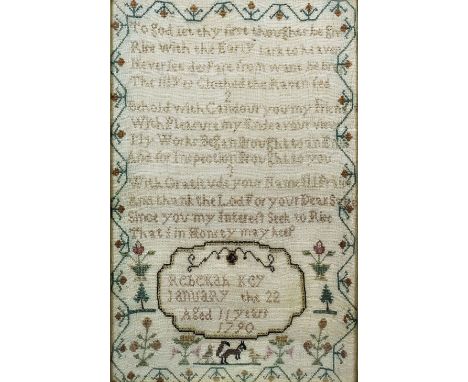 To god let thy first thoughts be giv
Rise with the Early lark to heaven
Never let despare from want be
The lilys Clothed the Raven fed
2
Behold with Candour you my Friend
With Pleasure my Endeavour view
My Works Began Brought to an End
And for Inspection Brought to you
3
With Gratitude your Name Ill
And thank the Lod For your Dear Sake
Since you my Interest Seek to Rise
That I in Honsty may keep
Rebekah Key
January the 22
Aged 11 years
1790